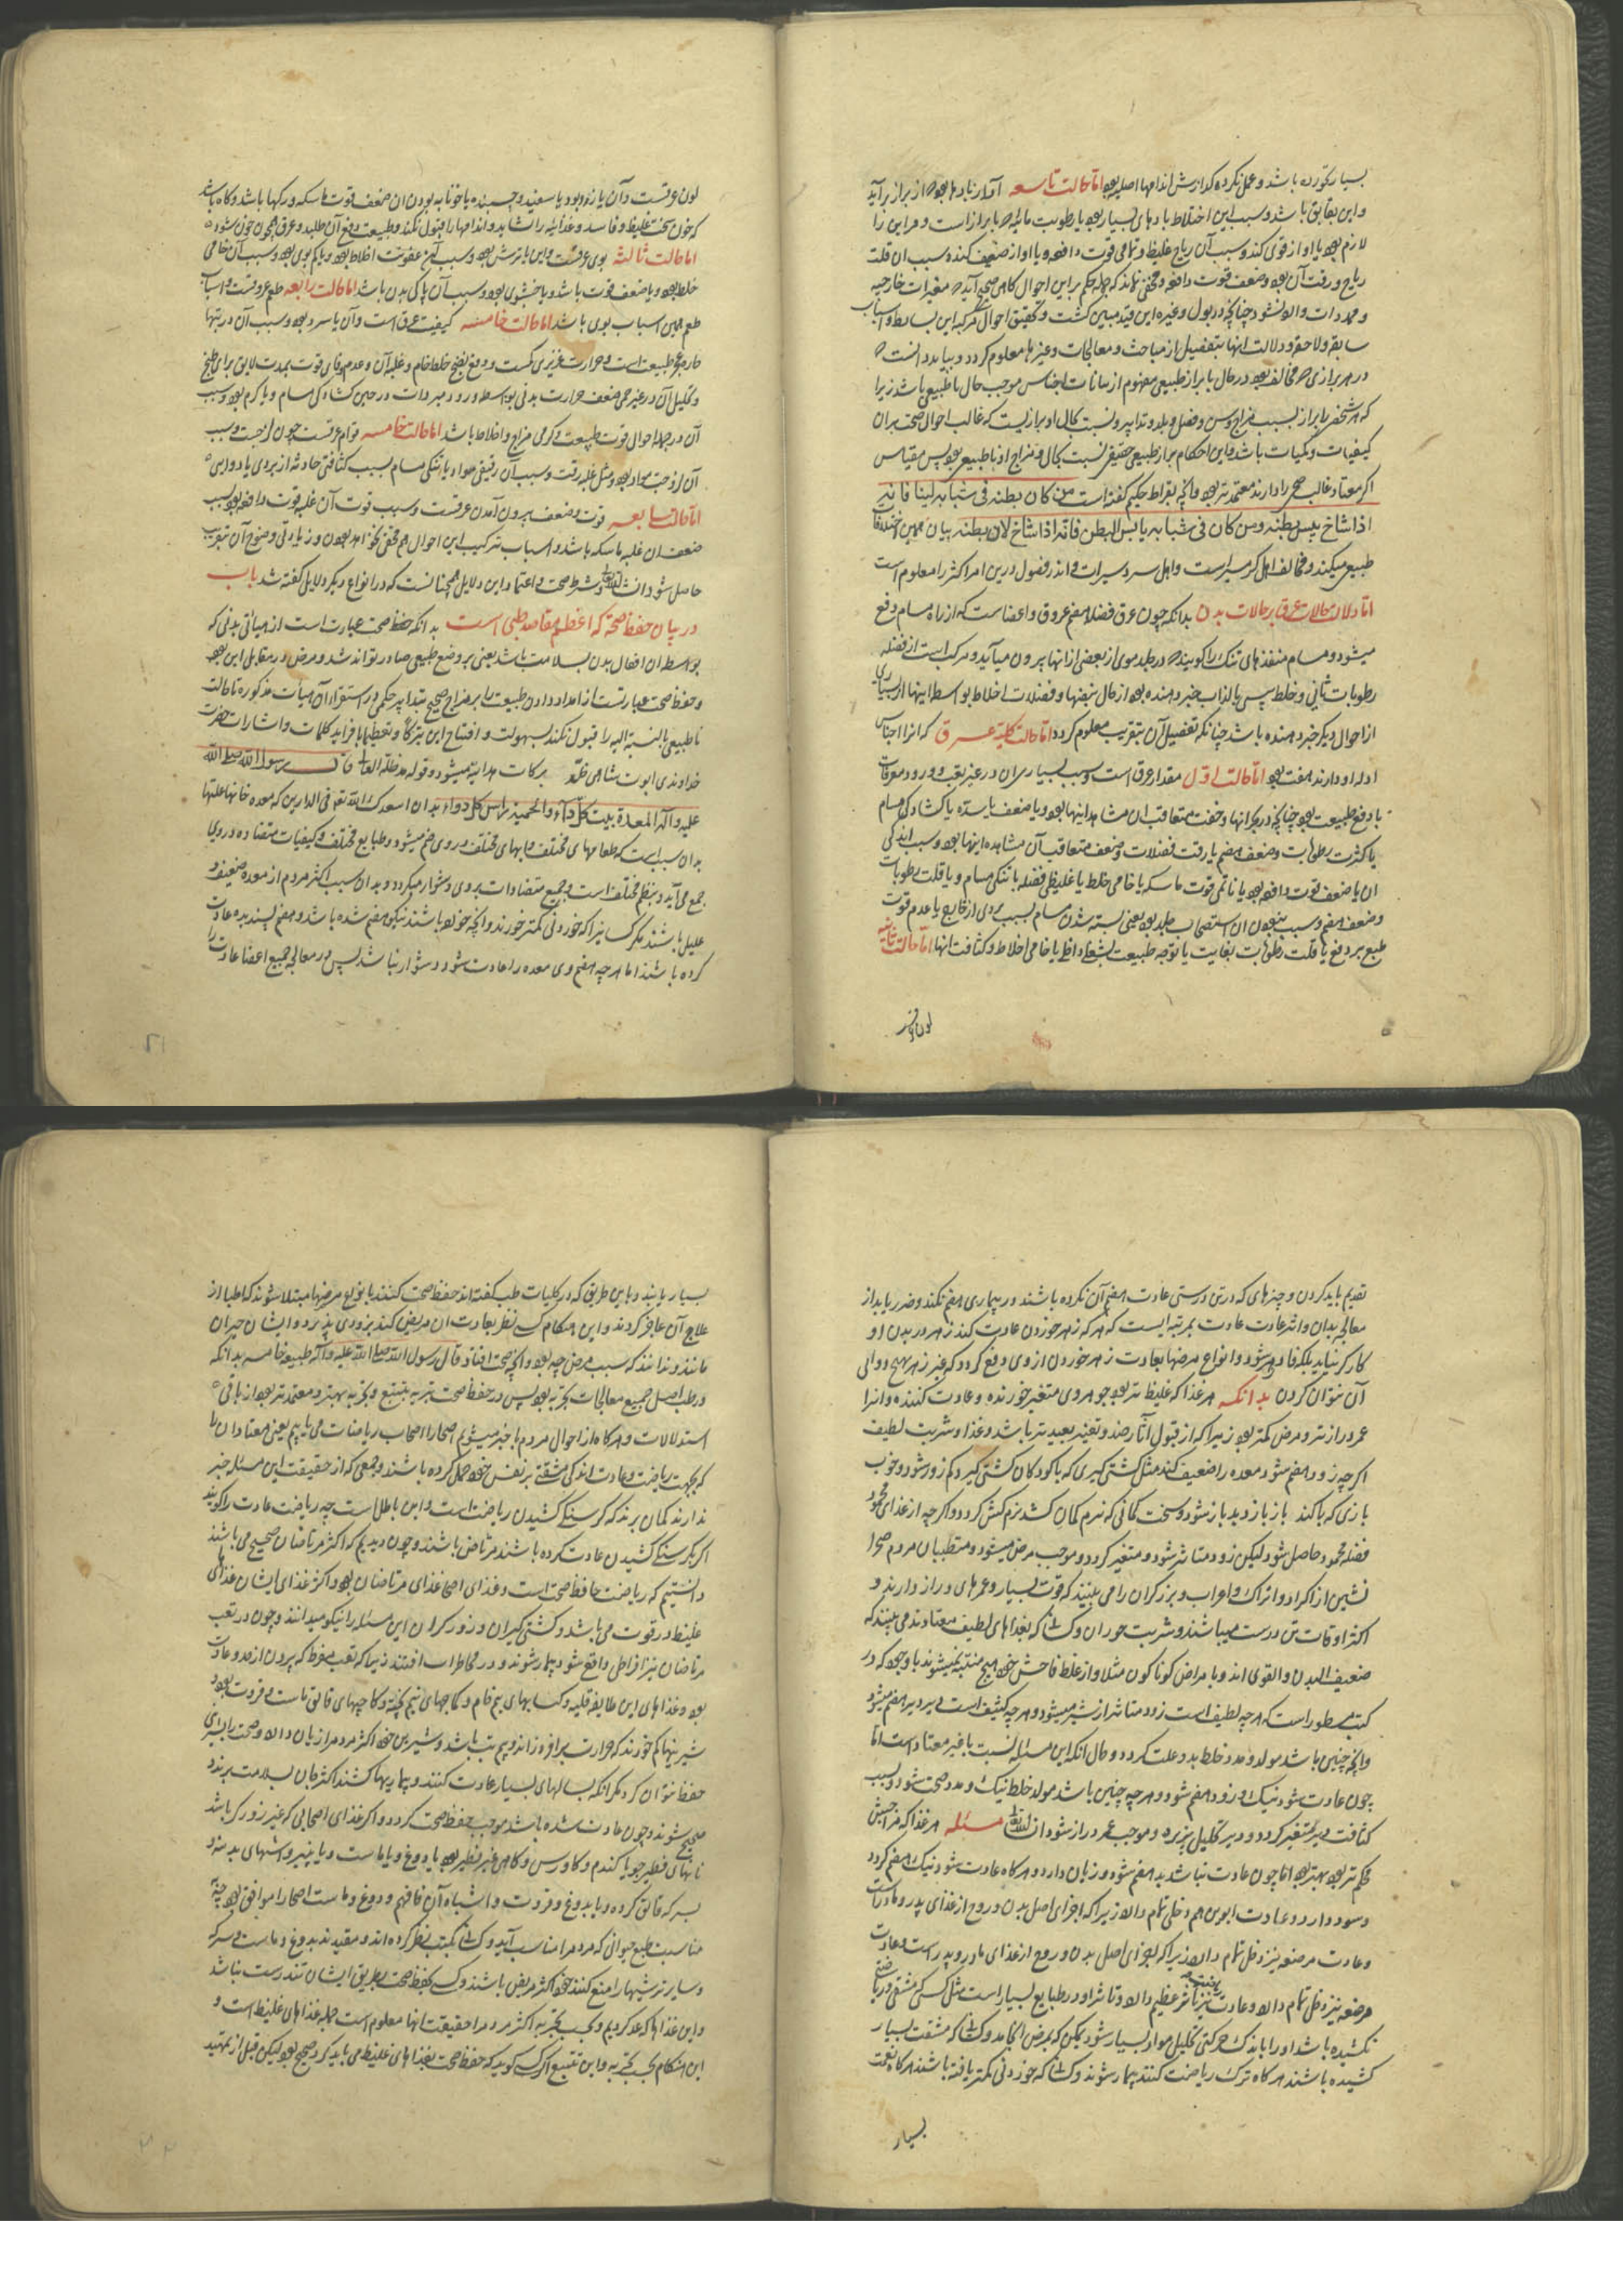 بسیار خورده باشد و عمل نکرده کدازش اندامها اصلیه بود اما حالت تاسعه آواز بادها بود که از براز برآید
و این بقایق باشد و سبب این اختلاط بادهای بسیار بود با رطوبت مایه که با براز است و هر این را
لازم بود یا آواز قوی کند و سبب آن ریاح غلیظ و تمامی قوت دافعه بود و یا آواز ضعیف کند و سبب آن قلت
ریاح و رقت آن بود و ضعف قوت دافعه و مخفی نماند که جمله حکم بر این احوال کاهی صحیح آید که مغیرات خارجیه
و محددات واقع نشود چنانچه در بول و غیره این قید مبین کشت و تحقیق احوال مرکبه این بسایط و اسباب
سابقه و لاحقه و دلالت اینها بتفصیل از مباحث و معالجات و غیرها معلوم کردد و بباید دانست که
در هر برازی که مخالف بود در حال با براز طبیعی مفهوم از بیانات اجناس موجب حال ناطبیعی باشد زیرا
که هر شخص را براز بسبب مزاج و سن و فصل و بلد و تدابیر و نسبت بحال او برازیست که غالب احوال صحت بر آن
کیفیات و کمیات باشد و این احکام براز طبیعی حقیقی نسبت بحال و مزاج او ناطبیعی بود پس مقیاس
اکر معتاد غالب صحی را دارند معتمدتر بود و آنچه بقراط حکیم کفته است من کان بطنه فی شبابه لینا فانه
اذا شاخ یبس بطنه و من کان فی شبابه یابس البطن فانه اذا شاخ لان بطنه بیان همین اختلافات
طبیعی میکند و مخالف اهل کرمسیر است و اهل سردسیر است و اندر فصول در این امر اکثر را معلوم است
اما دلالت حالات عرق بر حالات بدن بدانکه چون عرق فضله هضم عروق و اعضاست که از راه مسام دفع
میشود و مسام منفذهای تنک را کویند که در جلد موی از بعضی از آنها بیرون میآید و مرکب است از فضله
رطوبات ثانی و خلط پس بالذات خبر دهنده بود از حال نبضها و فضلات اخلاط بواسطه اینها از بسیاری
از احوال دیکر خبر دهنده باشد چنانکه تفصیل آن بتقریب معلوم کردد اما حالت کلیه عرق که آنرا اجناس
ادله او دارند هفت بود اما حالت اول مقدار عرق است و سبب بسیاری آن در غیر تعب و ورود معرقات
یا دفع طبیعت بود چنانچه در بحرانها و خفت متعاقب آن مشاهد اینها بود و یا ضعف یا سده یا کشادکی مسام
یا کثرت رطوبات و ضعف هضم یا رقت فضلات و ضعف متعاقب آن مشاهده اینها بود و سبب اندکی
آن یا ضعف قوت دافعه بود یا ناتمامی قوت ماسکه یا خامی خلط یا غلیظی فضله یا تنکی مسام و یا قلت رطوبات
و ضعف هضم و سبب نبودن آن استحصاف جلد بود یعنی بسته شدن مسام بسبب بردی از خارج یا عدم قوت
طبع بر دفع یا قلت رطوبات بغایت یا توجه طبیعت بشغل داخل یا خامی اخلاط و کثافت آنها اما حالت ثانیه
لون عرق
لون عرقست و آن یا زرد بود یا سفید و چسبنده یا خونابه بودن آن ضعف قوت ماسکه در رکها باشد و کاه باشد
که خون سخت غلیظ و فاسد و غذائیه را نشاید و اندامها را قبول نکند و طبیعت دفع آن طلبد و عرق همچون خون شود
اما حالت ثالثه بوی عرقست و این یا ترش بود و سبب آن عفونت اخلاط بود و یا کم بوی بود و سبب آن خامی
خلط بود و یا ضعف قوت باشد و یا خوشبوی بود و سبب آن پاکی بدن باشد اما حالت رابعه طعم عرقست و اسباب
طعم همین اسباب بوی باشد اما حالت خامسه کیفیت عرق است و آن یا سرد بود و سبب آن در تبها
در جمله احوال قوت طبیعت و کرمی مزاج و اخلاط باشد اما حالت خامسه قوام عرقست چون لزجت و سبب
آن لزوجت مواد بود و مثل غلبه رقت و سبب آن رقیقی مواد یا تنکی مسام بسبب کثافتی حادثه از بردی یا دوایی
اما حالت سابعه قوت و ضعف بیرون آمدن عرقست و سبب قوت آن غلبه قوت دافعه بود و سبب
ضعف آن غلبه ماسکه باشد و اسباب ترکیب این احوال هم مخفی نخواهد بود و زیادتی وضوح آن بتقریب
حاصل شود ان شاء الله تعالی و شرط صحت و اعتماد این دلایل همچنانست که در انواع دیکر دلایل کفته شد باب
در بیان حفظ صحة که اعظم مقاصد طبی است بدانکه حفظ صحت عبارت است از هیأتی بدنی که
بواسطه آن افعال بدن بسلامت باشد یعنی بر وضع طبیعی صادر تواند شد و مرض در مقابل این بود
و حفظ صحت عبارتست از امداد دادن طبیعت را بر مزاج صحیح بتدابیر حکمی در استقرار آن هیأت مذکوره تا حالت
ناطبیعی بالنسبة الیه را قبول نکند بسهولت و افتتاح این تبرکا و تعظیما بافراید کلمات و اشارات حضرت
خداوندی ابوت شاهی ظله برکات هدایة میشود و قوله مدظله العالی قال رسول الله صلی الله
علیه وآله المعدة بیت کل داء والحمیة رأس کل دواء بدان اسعدک الله تعالی فی الدارین که معده خانه علتها
بدان سبب است که طعامهای مختلف و آبهای مختلف در وی هضم میشود و طبایع مختلف و کیفیات متضاده در وی
جمع می‌آید و بنظم مختلف است و جمع متضادات بر وی دشوار میکردد و بدان سبب اکثر مردم از معده ضعیف و
علیل باشند مکر کسانیرا که خوردنی کمتر خورند و آنچه خورده باشند نیکو هضم شده باشد و هضم پسندیده عادت
کرده باشند اما هر چه هضم وی معده را عادت شود دشوار نباشد پس در معالجه جمیع اعضا عادت را
تقدیم باید کردن و چیزهای که در تن درستی عادت هضم آن نکرده باشند در بیماری هضم نکند و ضرر یابد از
معالجه بدان و اثر عادت بمرتبه ایست که هر که زهر خوردن عادت کند زهر در بدن او
کارکر نیاید بلکه فادزهر شود و انواع مرضها بعادت زهر خوردن از وی دفع کردد که غیر زهر بهیچ دوایی
آن نتوان کردن بدانکه هر غذا که غلیظ‌تر بود جوهر وی متغیر خورنده و عادت کننده و آنرا
عمر درازتر و مرض کمتر بود زیرا که از قبول آثار ضد و تغیر بعیدتر باشد و غذا و شربت لطیف
اکرچه زود هضم شود معده را ضعیف کند مثل کشتی کیری که با کودکان کشتی کیرد کم زور شود و خوب
بازی که با کند باز باز و بد باز شود و سخت کمانی که نرم کمان کشد نرم کش کردد و اکرچه از غذای محمود
فضله محمود حاصل شود لیکن زود متاثر شود و متغیر کردد و موجب مرض میشود و متطببان مردم صحرا
نشین از اکراد و اتراک و اعراب و برزکران را می بینند که قوت بسیار و عمرهای دراز دارند و
اکثر اوقات تن درست میباشند و شربت خوران و کسانی که بغذاهای لطیف معتادند می بینند که
ضعیف البدن و القوی اند و بامراض کوناکون مبتلا و از غلط فاحش خود هیچ متنبه نمیشوند با وجود که در
کتب مسطور است که هر چه لطیف است زود متاثر از شیر میشود و هر چه کثیف است دیر و دیر هضم میشود
و آنچه چنین باشد مولد و مدد خلط بد و علت کردد و حال آنکه این مسئله نسبت با غیر معتاد است اما
چون عادت شود نیک و زود هضم شود و هر چه چنین باشد مولد خلط نیک و مدد صحت شود و بسبب
کثافت دیر متغیر کردد و دیر تحلیل پذیرد و موجب عمر دراز شود ان شاء الله مسئله هر غذا که مزاجش
محکمتر بود بهتر بود اما چون عادت نباشد بد هضم شود و زیان دارد و هر کاه عادت شود نیک هضم کردد
و سود دارد و عادت ابوی هم دخلی تمام دارد زیرا که اجزای اصل بدن و روح از غذای پدر و مادر است
و عادت مرضعه نیز دخل تمام دارد زیرا که اجزای اصل بدن و روح از غذای مادر و پدر است و عادت
مرضعه نیز دخل تمام دارد و عادت نیز تاثیر عظیم دارد و تاثیر او در طبایع بسیار است مثل کسی که مشقتی و ریاضتی
نکشیده باشد او را باندک حرکتی تحلیل مواد بسیار شود یمکن که بمرض انجامد و کسانی که مشقت بسیار
کشیده باشند هر کاه ترک ریاضت کنند بیمار شوند و کسانی که خوردنی کمتر یافته باشند هر کاه نعمت
بسیار
بسیار یابند و باین طریق که در کلیات طب کفته اند حفظ صحت کنند بانواع مرضها مبتلا شوند که اطبا از
علاج آن عاجز کردند و این هنکام کسی نظر بعادت آن مریض کند بزودی پذیرد و ایشان حیران
مانند و ندانند که سبب مرض چه بود و آنچه صحت افتاد قال رسول الله صلی الله علیه وآله طبیعة خامسه بدانکه
در طب اصل جمیع معالجات تجربه بود پس در حفظ صحت تجربه بتتبع و تجربه بهتر و معتمدتر بود از باقی
استدلالات و هر کاه از احوال مردم باخبر میشویم اصحا را اصحاب ریاضات می یابیم یعنی معتادان را
که بجهت ریاضت و عادت اندکی مشقتی بر نفس خود حمل کرده باشند و جمعی که از حقیقت این مسئله خبر
ندارند کمان برند که کرسنکی کشیدن ریاضت است و این باطل است چه ریاضت عادت را کویند
اکر بکرسنکی کشیدن عادت کرده باشند مرتاض باشند و چون دیدیم که اکثر مرتاضان صحیح می باشند
دانستیم که ریاضت حافظ صحت است و غذای اصحا غذای مرتاضان بود و اکثر غذای ایشان غذای
غلیظ و در قوت می باشد و کشتی کیران و زورکران این مسئله را نیکو میدانند و چون در تعب
مرتاضان نیز افراطی واقع شود بیمار شوند و در مخاطرات افتند زیرا که تعب مفرط که بیرون از حد و عادت
بود و غذاهای این طایفه قلیه و کبابهای نیم خام و کماجهای نیم پخته و کاچیهای قالق ماست و قروت بود و
شیرینیها کم خورند که حرارت برافروزاند و بیم تب باشد و شیرین خود اکثر مردم را زیان دارد و صحت را بشیری
حفظ نتوان کرد مکر آنکه بسالهای بسیار عادت کنند و بیماریها کشند اکثر جان بسلامت برند و
صحیح شوند و چون عادت شده باشد موجب حفظ صحت کردد و اکر غذای اصحابی که غیر زورکر باشد
نانهای فطیر جو یا کندم و کاورس و کاهی غیر فطیر بود یا دوغ و یا ماست و یا پنیر و آشهای بد مزه و
بسرکه قالق کرده و یا بدوغ و قروت و اشباه آن فافهم و دوغ و ماست اصحا را موافق بود بجهة
مناسبت طبع حیوانی که مردم را مناسب آید و کسانی که بکتب نظر کرده اند و مقیدند بدوغ و ماست و سرکه
و سایر ترشیها را منع کنند خود اکثر مریض باشند و کسی بحفظ صحت بطریق ایشان تندرست نباشد
و این غذاها که عد کردیم و بحسب تجربه اکثر مردم را حقیقت آنها معلوم است جمله غذاهای غلیظ است و
این هنکام بحسب تجربه و این تتبع اکر کسی کوید که حفظ صحت بغذاهای غلیظ می باید کرد صحیح بود لیکن قبل از تمهید